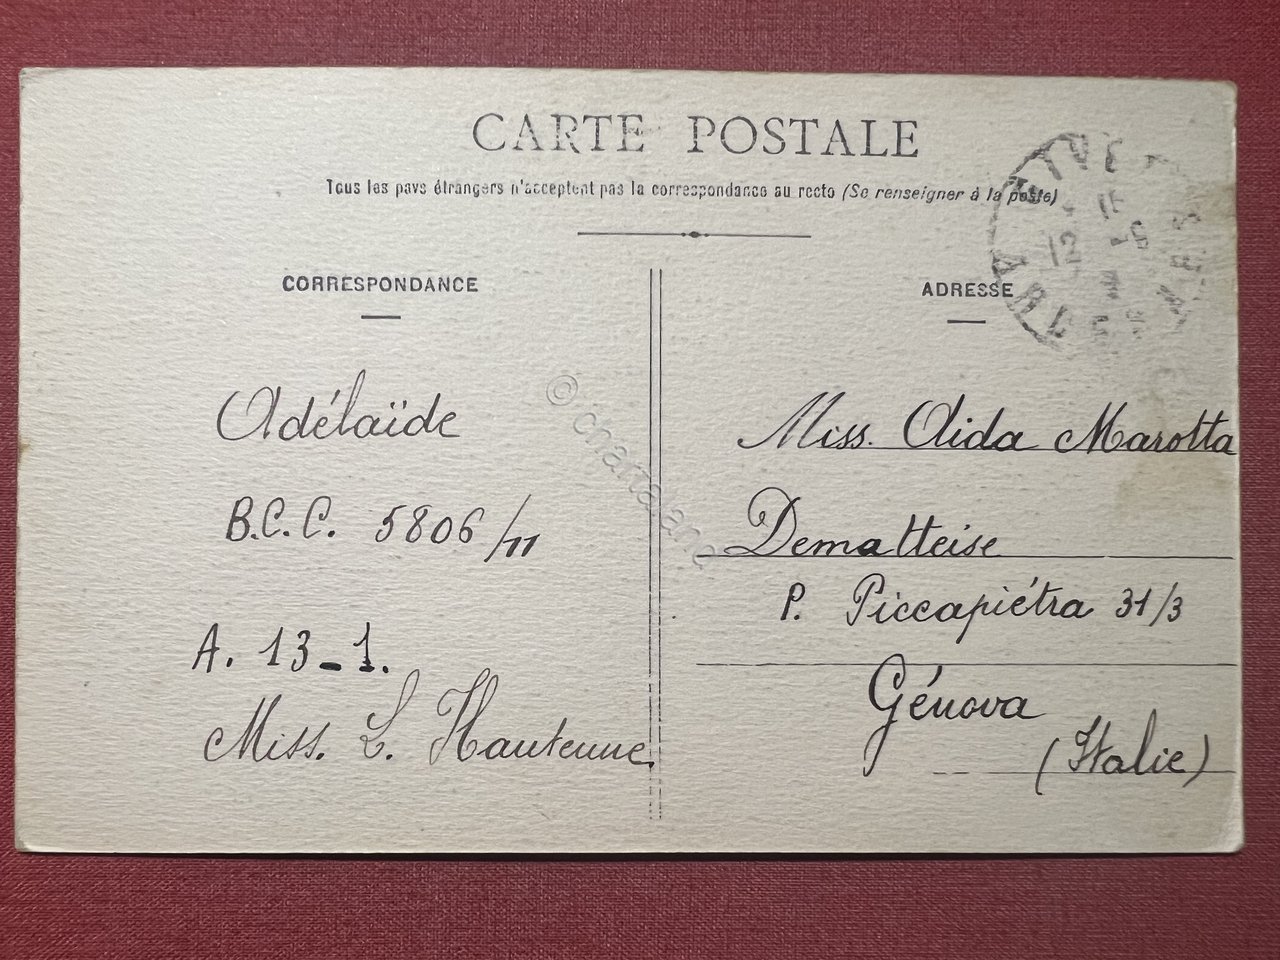 CARTE POSTALE
Tous les pays étrangers n'acceptent pas la correspondance au recto (Se renseigner à la poste)
CORRESPONDANCE
ADRESSE
Adélaïde
B.C.C. 5806/11
A. 13-1.
Miss. L. Hautenne.
Miss. Aida Marotta
Dematteise
P. Piccapiétra 31/3
Génova
(Italie)
© charta